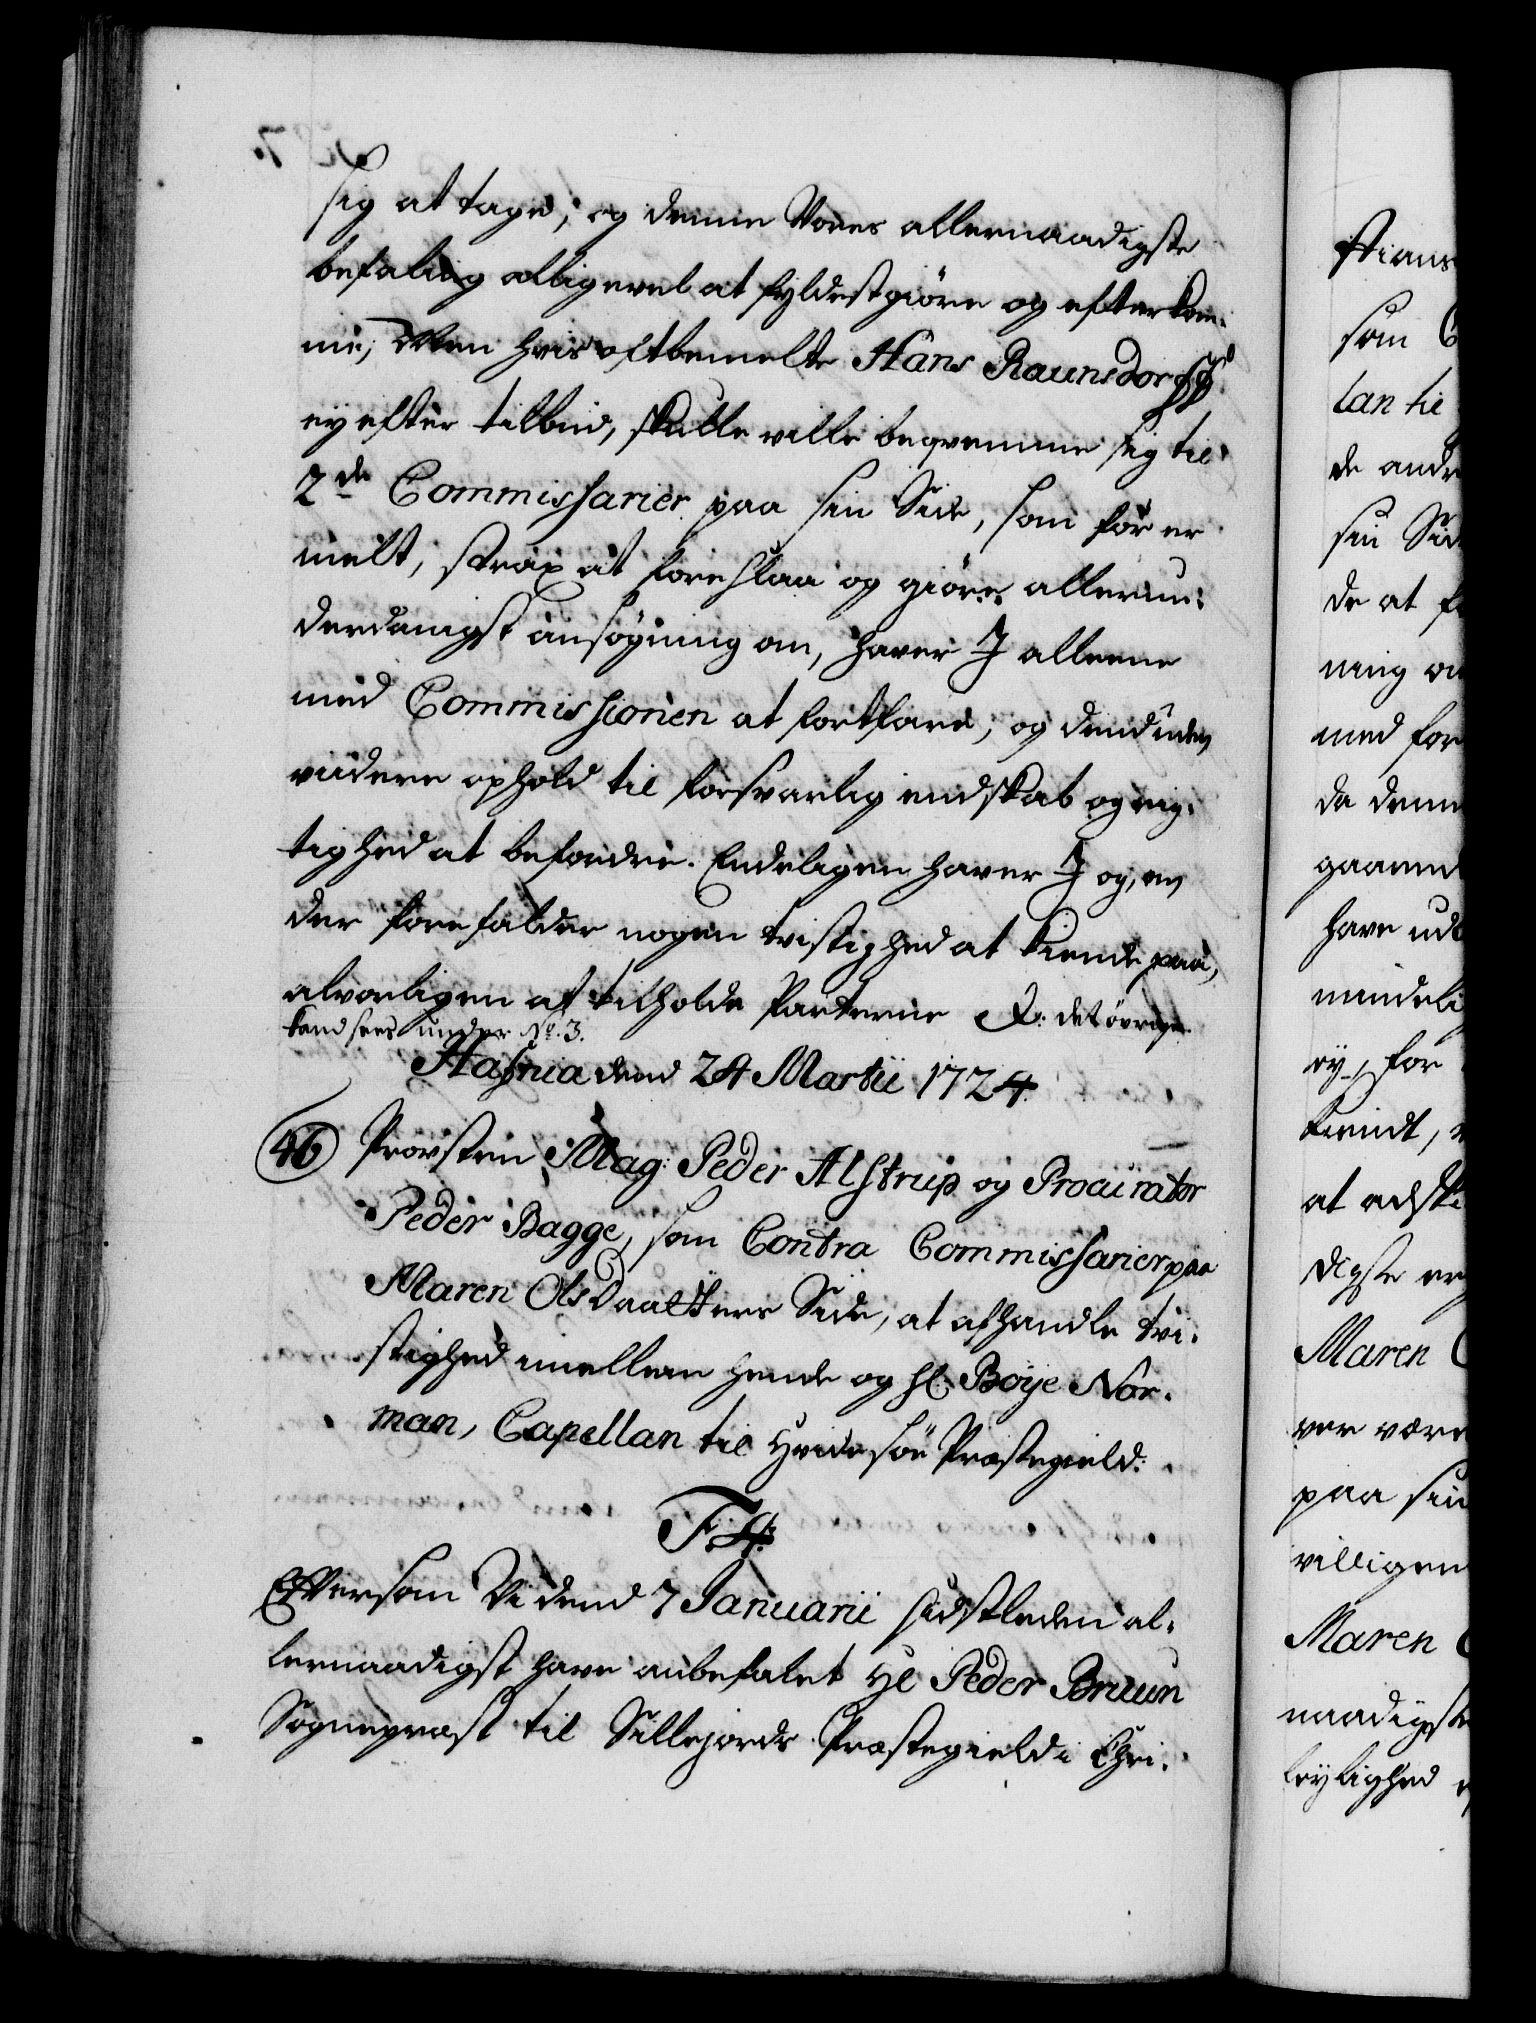 sig at tage; og denne Vores allernaadigste
befaling alligevel at fyldestgiöre og efterkom-
me; Men hvis oftbemelte Hans Raunsdorff
ey efter tilbud, skulle ville beqvemme sig til
2de Commissarier paa sin Side, som før er
melt, strax at foreslaa og giöre allerun-
derdanigst ansøgning om, haver I alleene
med Commissionen at fortfare; og dend uden
viidere ophold til forsvarlig endskab og rig-
tighed at befordre. Endeligen haver I og, om
der forefalder nogen tvistighed at kiende paa,
alvorligen at tilholde Parterne &: det övrige
kand sees under No. 3.
Hafnia dend 24 Martii 1724.
46 Provsten Mag: Peder Alstrup og Procurator
Peder Bagge, som Contra Commissarier paa
Maren OlsDaatters Side, at afhandle tvi-
stighed imellem hende og hl: Boye Nor-
man, Capellan til Hvidesöe Præstegield.
F. 4.
Eftersom Vi dend 7 Januarii sidstleden al-
lernaadigst have anbefalet Hl Peder Bruun
Sognepræst til Sillejords Præstegield i Chri-
stians
som C
lan til
de andr
sin Sid
de at f
ning o
med for
da denn
gaaend
have ud
mindeli
ey, for
kiendt,
at adski
digste er
Maren
ver være
paa sin
villigen
Maren
naadigste
leylighed